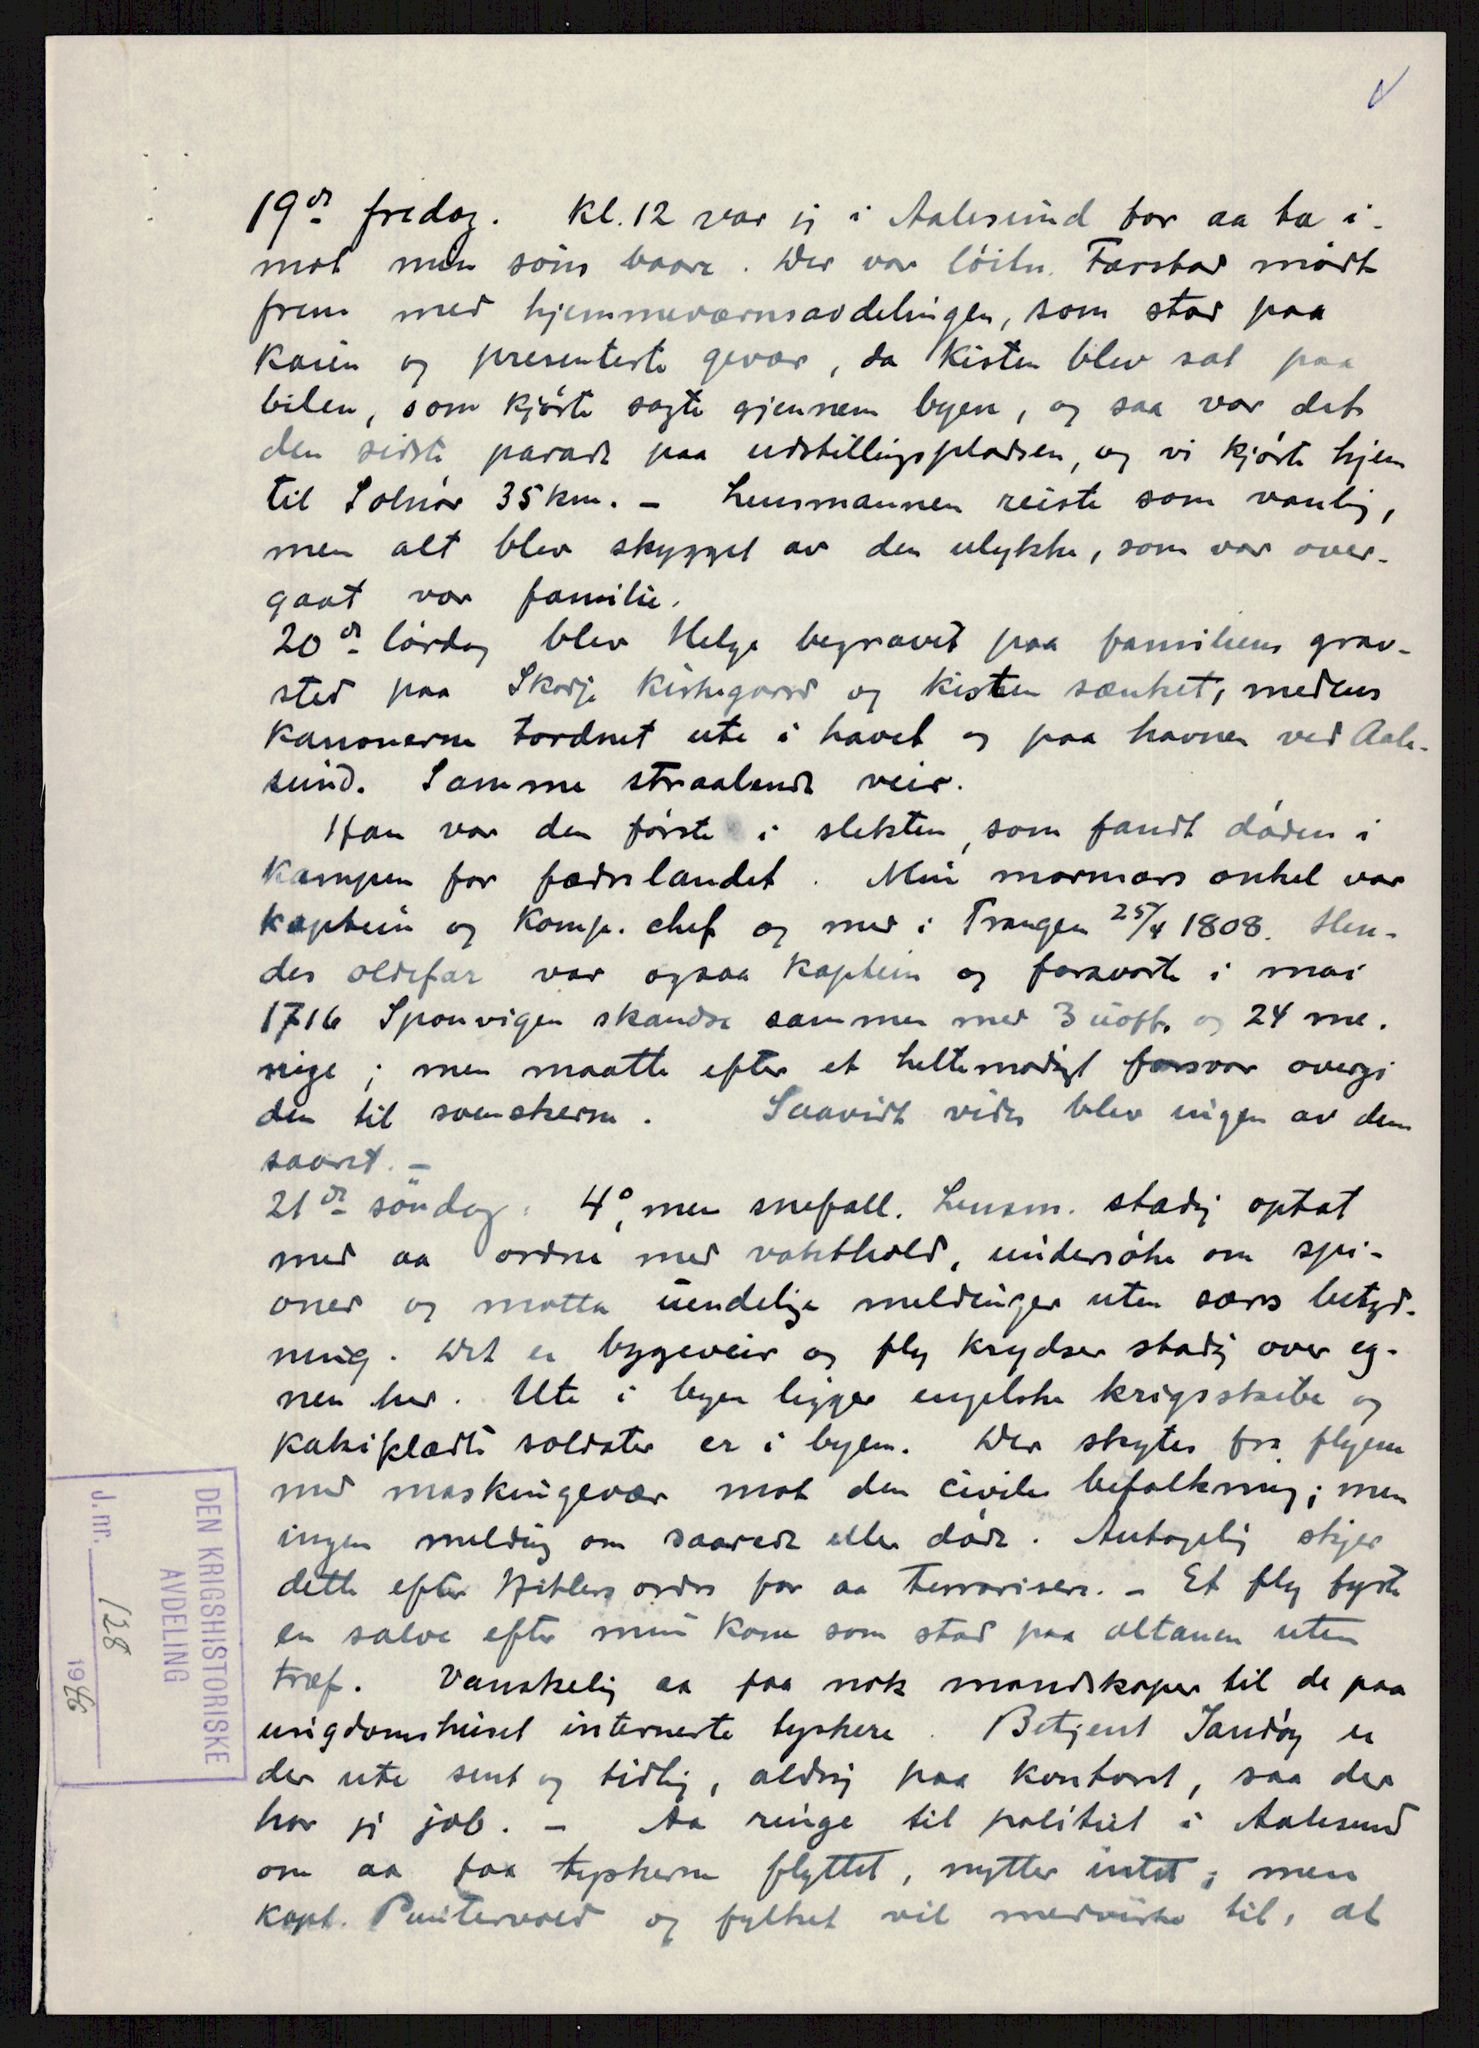 19de fredag. Kl. 12 var jeg i Aalesund for aa ta i-
mot min søns baare. Der var löitn. Farstad mødt
frem med hjemmeværnsavdelingen, som stod paa
kaien og presenterte gevær, da kisten blev sat paa
bilen, som kjørte sagte gjennem byen, og saa var det
den sidste parade paa udstillingspladsen, og vi kjørte hjem
til Solnör 35 km. – Lensmannen reiste som vanlig,
men alt blev skygget av den ulykke, som var over-
gaat vor familie.
20de lördag blev Helge begravet paa familiens grav-
sted paa Skodje Kirkegaard og kisten sænket, medens
kanonerne tordnet ute i havet og paa havnen ved Aale-
sund. Samme straalende veir.
Han var den første i slekten, som fandt døden i
kampen for fædrelandet. Min mormors onkel var
kaptein og Komp. chef og med i Trangen 25/4 1808. Hen-
des oldefar var ogsaa kaptein og forsvarte i mai
1716 Sponvigen skandse sammen med 3 uoff. og 24 me-
nige; men maatte efter et heltemodigt forsvar overgi
den til svenskerne. Saavidt vides blev ingen av dem
saaret. –
21de söndag. 4°, men snefall. Lensm. stadig optat
med aa ordne med vakthold, undersøke om spi-
oner og motta uendelige meldinger uten særs betyd-
ning. Det er bygeveir og fly krydser stadig over eg-
nen her. Ute i byen ligger engelske krigsskibe og
kakiklædte soldater er i byen. Der skytes fra flyene
med maskingevær mot den civile befolkning; men
ingen melding om saarede eller døde. Antagelig skjer
dette efter Hitlers ordre for aa terrorisere. – Et fly fyrte
en salve efter min kone som stod paa altanen uten
træf. Vanskelig aa faa nok mandskaper til de paa
ungdomshuset internerte tyskere. Betjent Sandøy er
der ute sent og tidlig, aldrig paa kontoret, saa der
har jeg job. – Aa ringe til politiet i Aalesund
om aa faa tyskerne flyttet, nytter intet; men
kapt. Puntervold og fylket vil medvirke til, at
DEN KRIGSHISTORISKE
AVDELING
J. nr. 128 1946